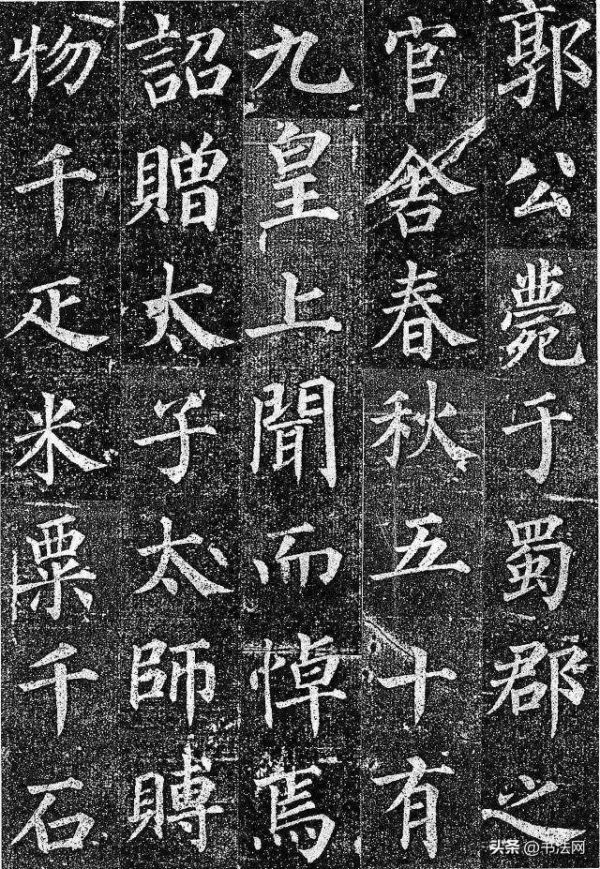 郭公薨于蜀郡之
官舍春秋五十有
九皇上聞而悼焉
詔贈太子太師賻
物千疋米粟千石
头条 @书法网